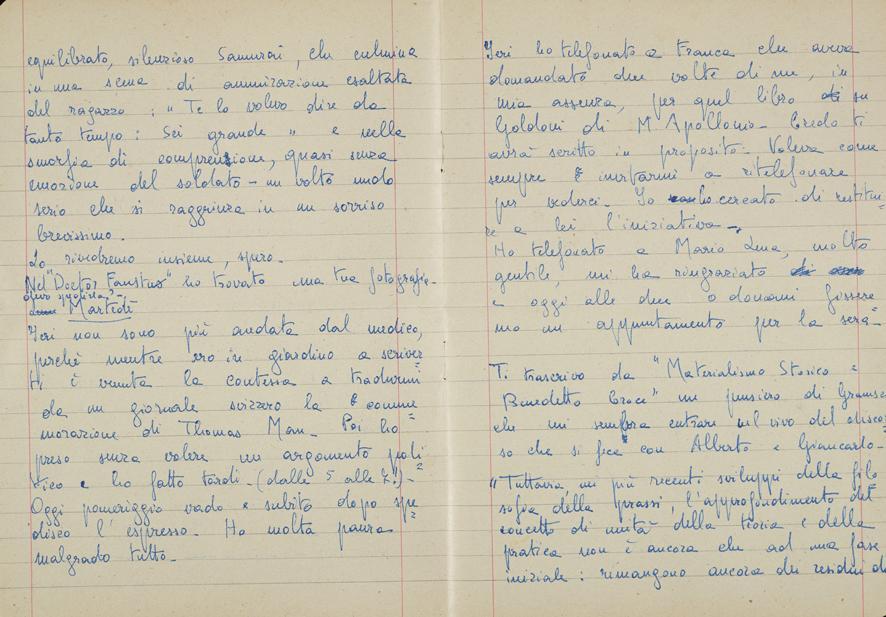 equilibrato, silenzioso Samurai, che culmina
in una scena di ammirazione esaltata
del ragazzo : " Te lo volevo dire da
tanto tempo : Sei grande " e nella
smorfia di comprensione, quasi senza
emozione del soldato - un volto nudo
serio che si raggrinza in un sorriso
brevissimo.
Lo rivedremo insieme, spero.
Nel "Doctor Faustus" ho trovato una tua fotografia.
Martedì
Ieri non sono più andata dal medico,
perchè mentre ero in giardino a scriver
ti è venuta la contessa a tradurmi
da un giornale svizzero la comme
morazione di Thomas Man. Poi ho
preso senza volere un argomento poli
tico e ho fatto tardi - (dalle 5 alle 7!) -
Oggi pomeriggio vado e subito dopo spe
disco l'espresso. Ho molta paura
malgrado tutto.
Ieri ho telefonato a Franca che aveva
domandato due volte di me, in
mia assenza, per quel libro su
Goldoni di M. Apollonio - Credo ti
avrà scritto in proposito - Voleva come
sempre invitarmi a ritelefonare
per vederci. Io ho cercato di restitui
re a lei l'iniziativa -
Ho telefonato a Maria Luna, molto
gentile, mi ha ringraziato
e oggi alle due o domani fissere
mo un appuntamento per la sera -
Ti trascrivo da "Materialismo Storico e
Benedetto Croce" un pensiero di Gramsci
che mi sembra entrare nel vivo del discor
so che si fece con Alberto e Giancarlo -
"Tuttavia, nei più recenti sviluppi della filo
sofia della prassi, l'approfondimento del
concetto di unità della teoria e della
pratica non è ancora che ad una fase
iniziale : rimangono ancora dei residui di